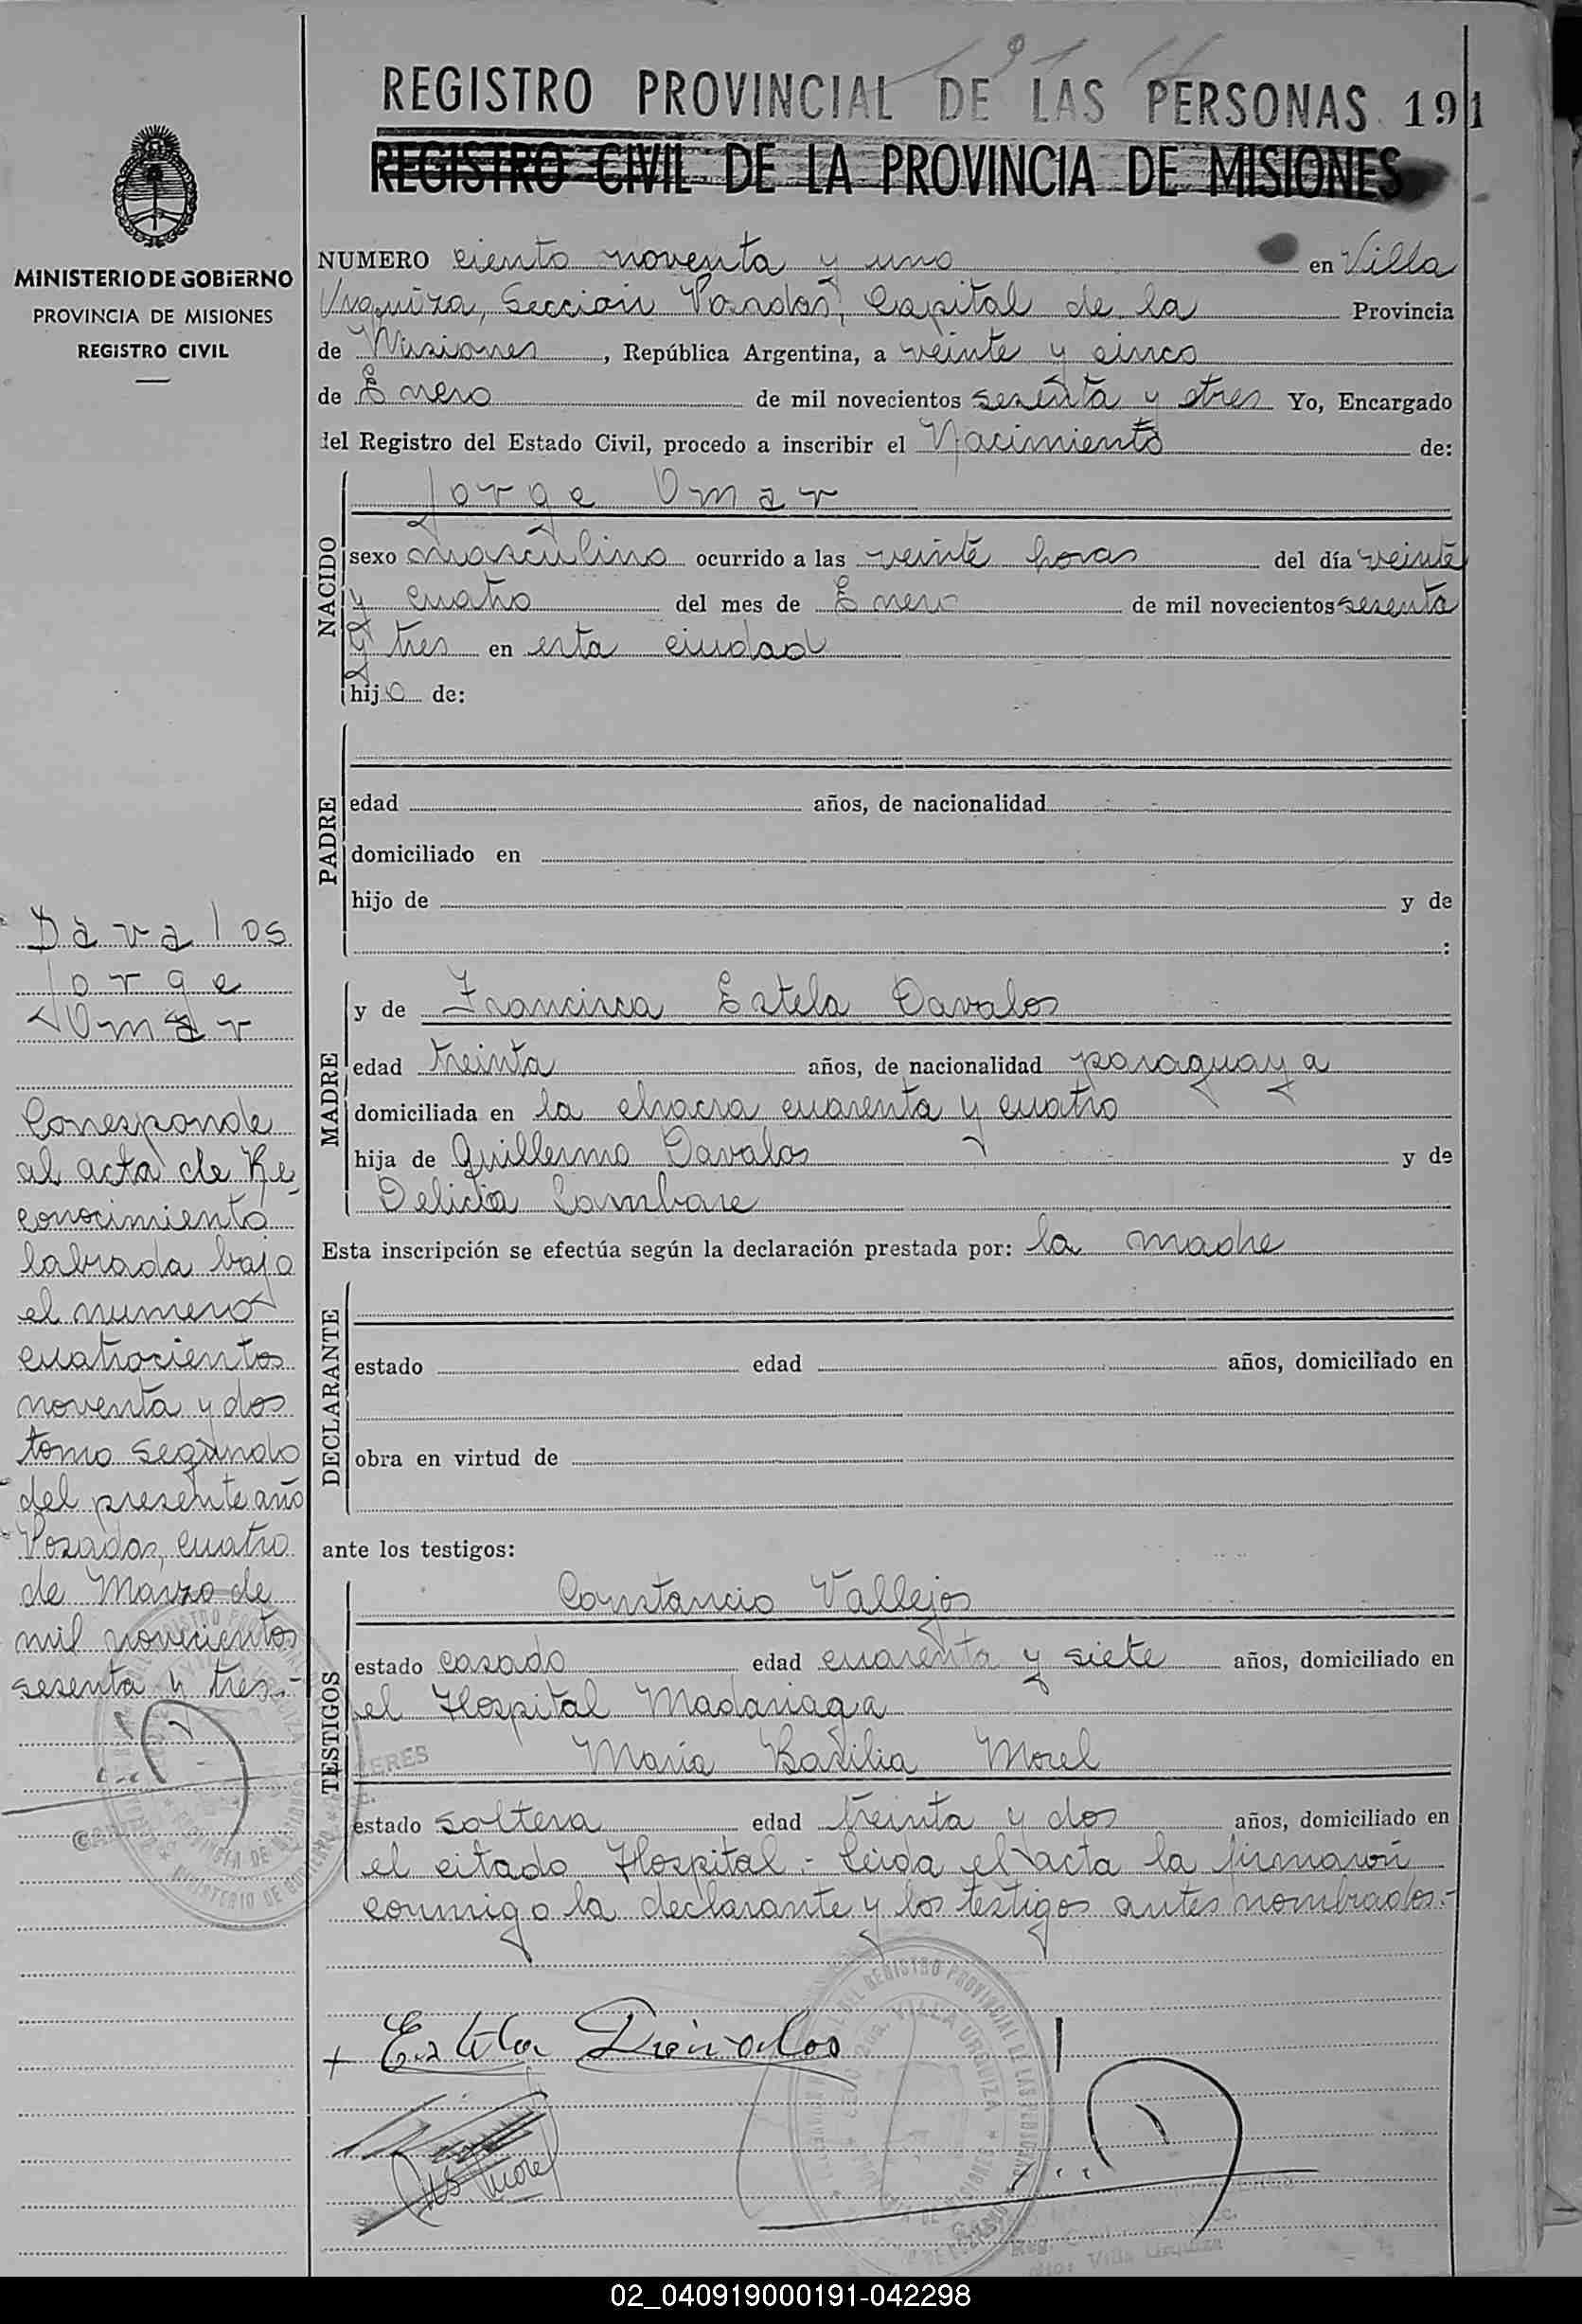 REGISTRO PROVINCIAL DE LAS PERSONAS 191
REGISTRO CIVIL DE LA PROVINCIA DE MISIONES
MINISTERIO DE GOBIERNO
PROVINCIA DE MISIONES
REGISTRO CIVIL
NUMERO ciento noventa y uno en Villa
Urquiza, Sección Posadas, Capital de la Provincia
de Misiones, República Argentina, a veinte y cinco
de Enero de mil novecientos sesenta y tres Yo, Encargado
del Registro del Estado Civil, procedo a inscribir el Nacimiento de:
NACIDO
Jorge Omar
sexo masculino ocurrido a las veinte horas del día veinte
y cuatro del mes de Enero de mil novecientos sesenta
y tres en esta ciudad
hijo de:
PADRE
edad años, de nacionalidad
domiciliado en
hijo de y de
:
Davalos
Jorge
Omar
MADRE
y de Francisca Estela Davalos
edad treinta años, de nacionalidad paraguaya
domiciliada en la chacra cuarenta y cuatro
hija de Guillermo Davalos y de
Delicia Lambare
Esta inscripción se efectúa según la declaración prestada por: la madre
DECLARANTE
estado edad años, domiciliado en
obra en virtud de
Corresponde
al acta de Re
conocimiento
labrada bajo
el numero
cuatrocientos
noventa y dos
tomo segundo
del presente año
Posadas, cuatro
de Marzo de
mil novecientos
sesenta y tres.-
ante los testigos:
TESTIGOS
Constancio Vallejos
estado casado edad cuarenta y siete años, domiciliado en
el Hospital Madariaga
María Basilia Morel
estado soltera edad treinta y dos años, domiciliado en
el citado Hospital.- Leida el acta la firmaron
conmigo la declarante y los testigos antes nombrados.-
+ Estela Davalos
02_040919000191-042298